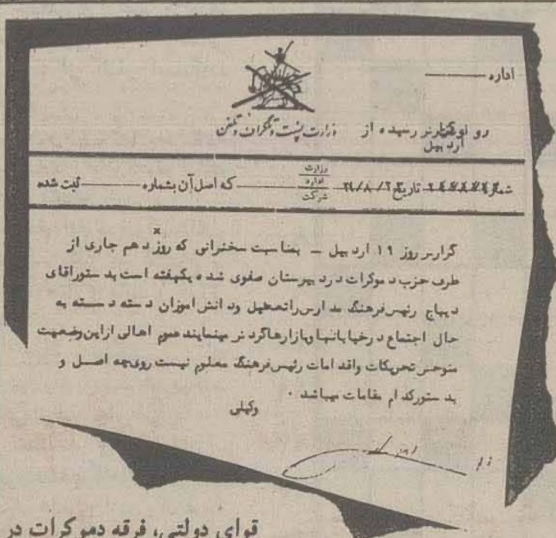 اداره
وزارت پست و تلگراف و تلفن
رونوشت گزارش رسیده از
اردبیل
وزارت
اداره
شرکت
شماره تاریخ ۲۱/۸/ که اصل آن بشماره ثبت شده
گزارش روز ۱۹ اردبیل ـ بمناسبت سخنرانی که روز دهم جاری از
طرف حزب دموکرات در دبیرستان صفوی شده یکهفته است بدستور اقای
دیباج رئیس فرهنگ مدارس راتعطیل ودانش اموزان دسته دسته به
حال اجتماع درخیابانها وبازارهاگردش مینمایند عموم اهالی ازاین وضعیت
متوحش تحریکات واقدامات رئیس فرهنگ معلوم نیست روی چه اصل و
بدستور کدام مقامات میباشد ۰
وکیلی
قوای دولتی، فرقه دموکرات در